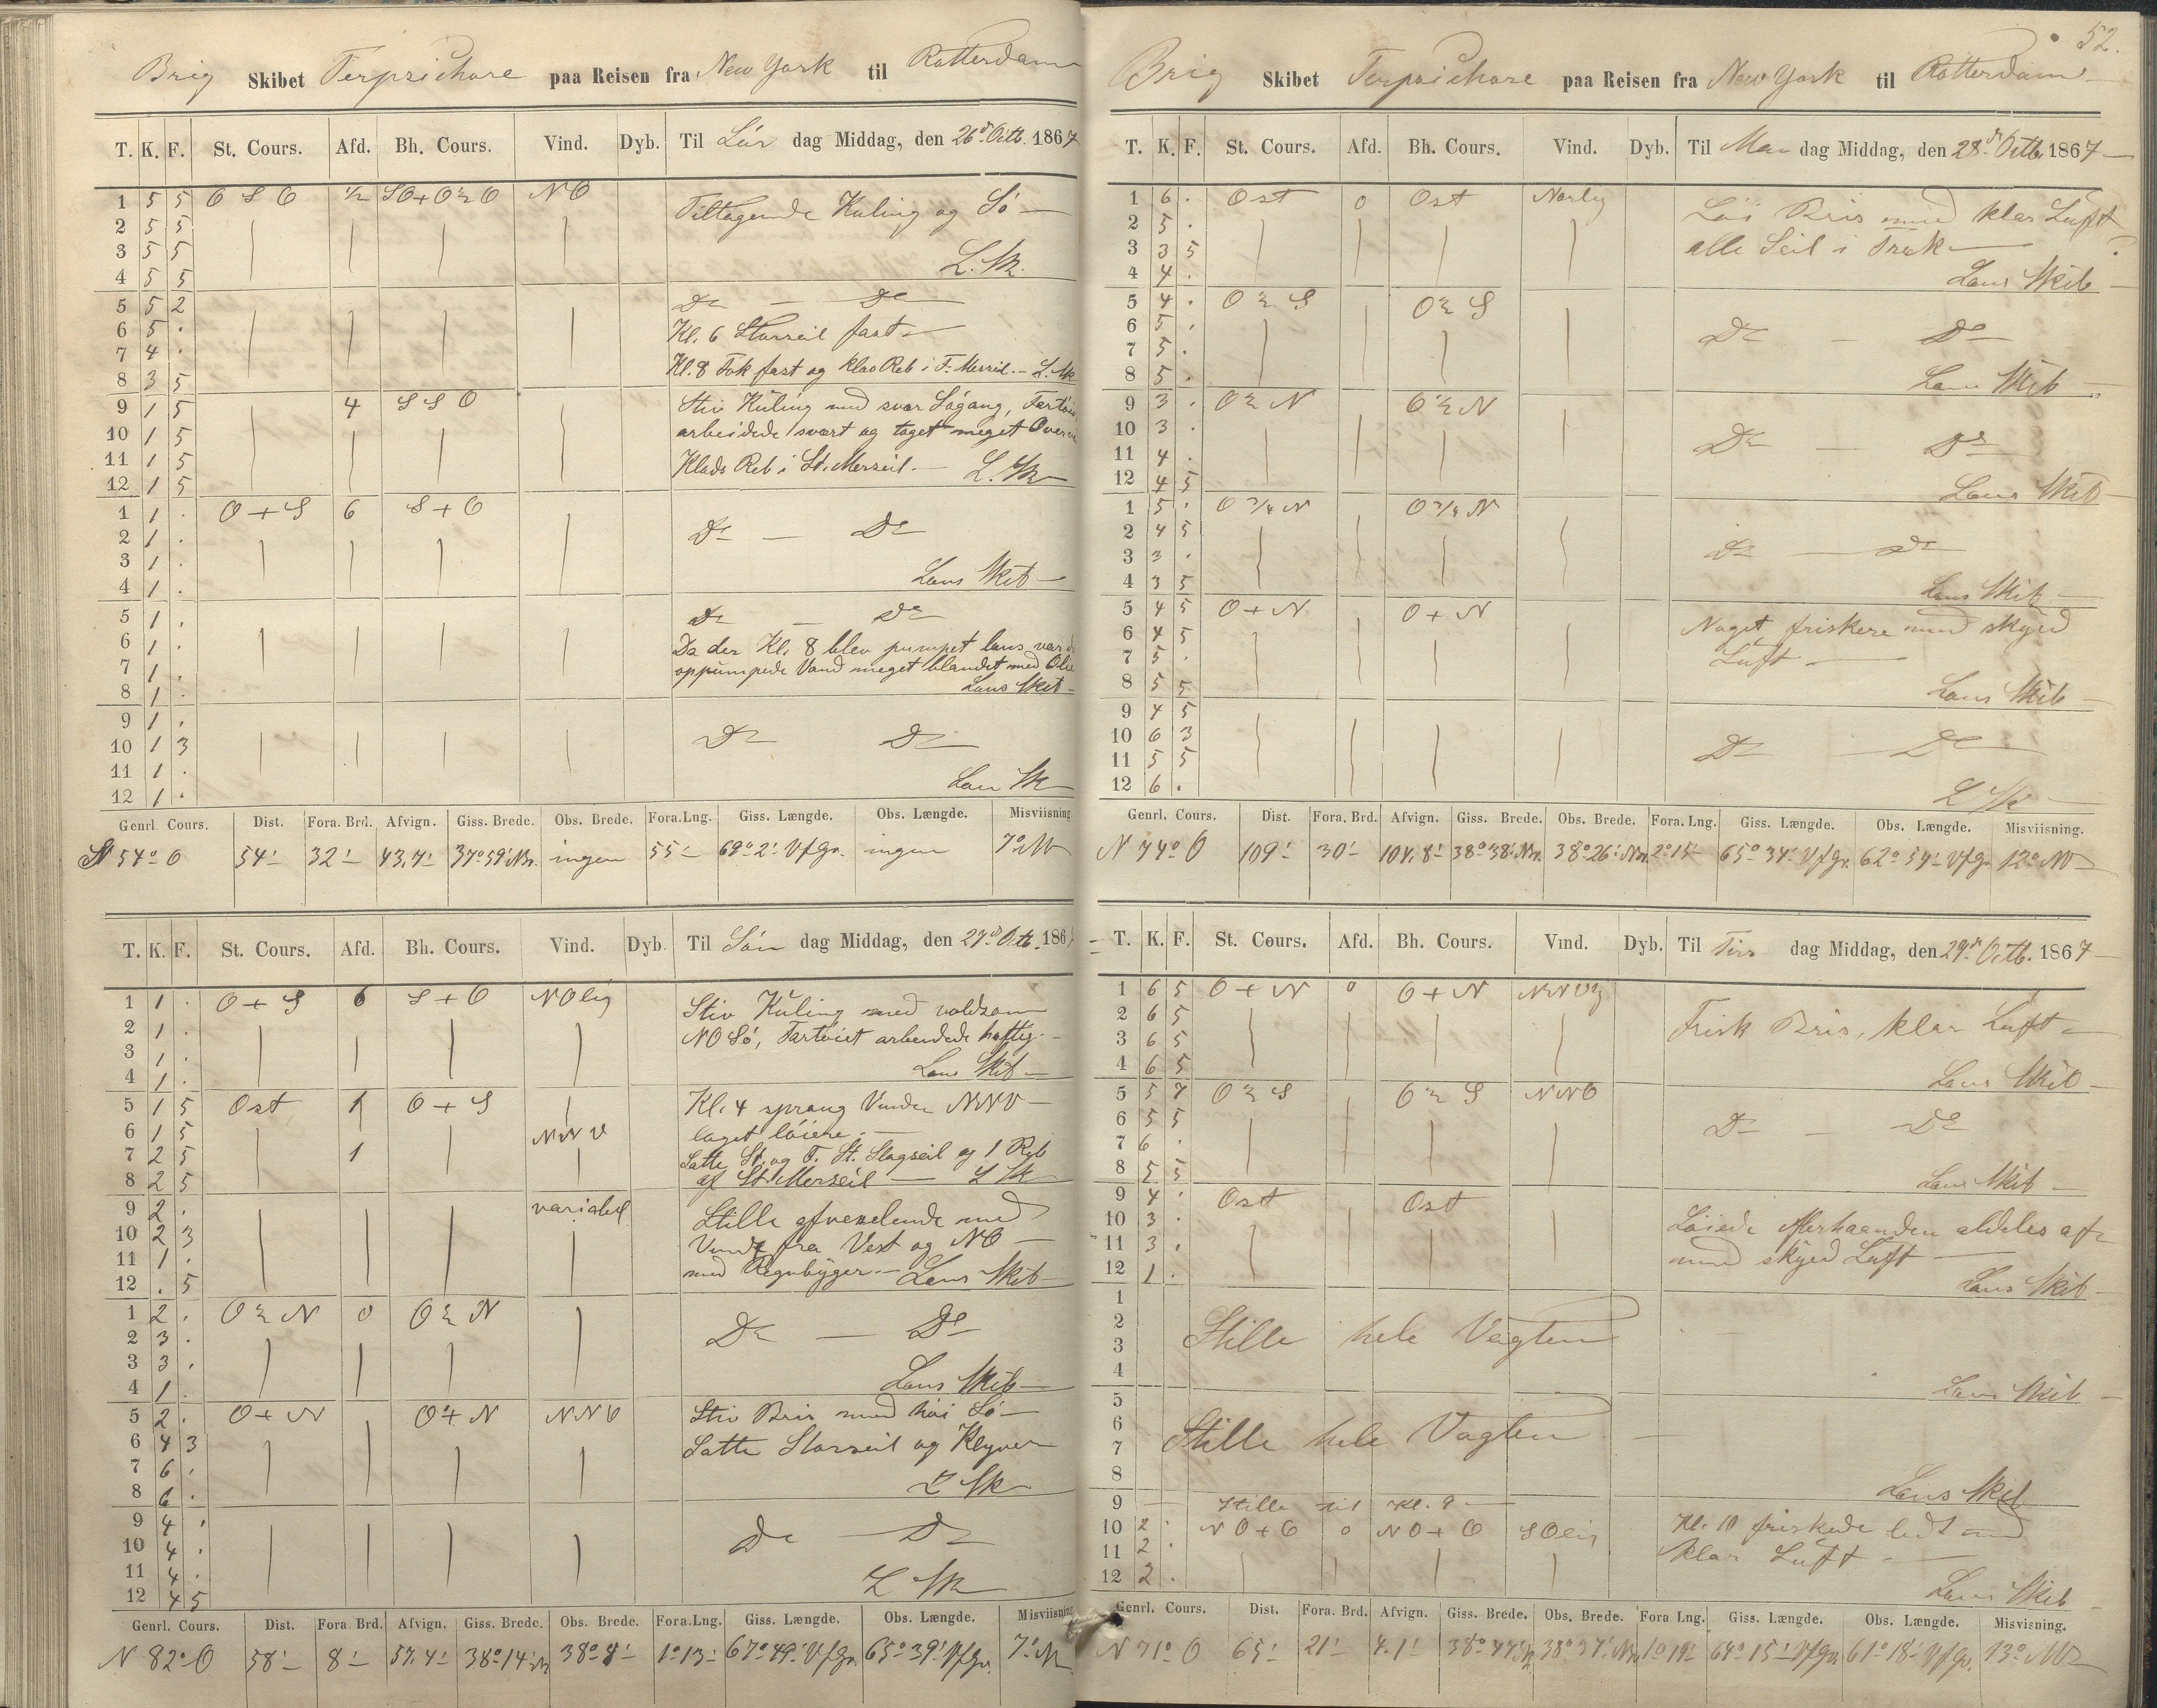 Brig Skibet Terpsichore paa Reisen fra New York til Rotterdam
T. K. F. St. Cours. Afd. Bh. Cours. Vind. Dyb. Til Lör dag Middag, den 26d Octb. 1867
1 5 5 O S O ½ SO+O NO
2 5 5 Tiltagende Kuling og Sö —
3 5 5
4 5 5 L. Sk.
5 5 2 Do — Do
6 5 . Kl. 6 Storseil fast —
7 4 .
8 3 5 Kl. 8 Fok fast og klos Reb i F. Merseil. — L. Sk
9 1 5 4 S S O Stiv Kuling med svær Sögang, Fartöi
10 1 5 arbeidede svært og toget meget Over
11 1 5 Klods Reb i St. Merseil. — L. Sk
12 1 5
1 1 . O + S 6 S + O
2 1 . Do — Do
3 1 .
4 1 . Lens Skib —
5 1 . Do — Do
6 1 . Da der Kl. 8 blev pumpet lens var
7 1 . oppumpede Vand meget blandet med Olie
8 1 . Lens Skib —
9 1 .
10 1 3 Do Do
11 1 .
12 1 . Len Sk
Genrl. Cours. Dist. Fora. Brd. Afvign. Giss. Brede. Obs. Brede. Fora. Lng. Giss. Længde. Obs. Længde. Misviisning
N 54° O 54' 32' 43,7' 37° 59' Nr. ingen 55' 69° 2' V f Gr. ingen 7° NV
T. K. F. St. Cours. Afd. Bh. Cours. Vind. Dyb. Til Sön dag Middag, den 27d Octb. 186
1 1 . O + S 6 S + O NOlig Stiv Kuling med voldsom
2 1 . NO Sö, Fartöiet arbeidede heftig —
3 1 .
4 1 . Lens Skib —
5 1 5 Ost 1 O + S Kl. 4 sprang Vinden NNV —
6 1 5 NNV laget löiere. —
7 2 5 1 Satte St. og F. St. Stagseil og 1 Reb
8 2 5 af St. Merseil — L Sk
9 2 . variabel Stille afvexlende med
10 2 3 Vinde fra Vest og NO —
11 1 . med Regnbyger. — Lens Skib —
12 . 5
1 2 . O ½ N 0 O ½ N
2 3 . Do — Do
3 3 .
4 1 . Lens Skib —
5 2 . O + N O + N NNO Stiv Bris med höi Sö —
6 4 3 Satte Storseil og Klyver
7 6 .
8 6 . L Sk
9 4 .
10 4 . Do Do
11 4 .
12 4 5 L Sk
Genrl. Cours. Dist. Fora. Brd. Afvign. Giss. Brede. Obs. Brede. Fora. Lng. Giss. Længde. Obs. Længde. Misviisning
N 82° O 58' 8' 57,4' 38° 14' N 38° 8' 1° 13' 67° 49' V f Gr. 65° 39' V f Gr. 7° N
52.
Brig Skibet Terpsichore paa Reisen fra New York til Rotterdam
T. K. F. St. Cours. Afd. Bh. Cours. Vind. Dyb. Til Man dag Middag, den 28d Octb. 1867 —
1 6 . Ost 0 Ost Norlig Löi Bris med klar Luft
2 5 .
3 3 5 alle Seil i Træk —
4 4 . Lens Skib —
5 4 . O ½ S O ½ S
6 5 . Do — Do
7 5 .
8 5 . Lens Skib —
9 3 . O ½ N O ½ N
10 3 . Do — Do
11 4 .
12 4 5 Lens Skib —
1 5 . O ¾ N O ¾ N
2 4 5
3 3 . Do — Do
4 3 5 Lens Skib —
5 4 5 O + N O + N Noget friskere med skyed
6 4 5
7 5 . Luft —
8 5 5 Lens Skib —
9 4 5
10 6 3 Do — Do
11 5 5
12 6 . L Sk —
Genrl. Cours. Dist. Fora. Brd. Afvign. Giss. Brede. Obs. Brede. Fora. Lng. Giss. Længde. Obs. Længde. Misviisning.
N 74° O 109' 30' 104,8' 38° 38' Nr. 38° 26' Nr. 2° 15' 65° 34' V f Gr. 62° 54' V f Gr. 12° NV
T. K. F. St. Cours. Afd. Bh. Cours. Vind. Dyb. Til Tirs dag Middag, den 29d Octb. 1867 —
1 6 5 O + N 0 O + N
2 6 5 Frisk Bris, klar Luft —
3 6 5
4 6 5 Lens Skib —
5 5 7 O ½ S O ½ S NNO
6 5 5 Do — Do
7 6 .
8 5 5 Lens Skib —
9 4 . Ost Ost
10 3 . Löiede efterhaanden aldeles af
11 3 . med skyed Luft —
12 1 . Lens Skib —
1
2
3 Stille hele Vagten
4 Lens Skib —
5
6
7 Stille hele Vagten —
8 Lens Skib
9 — Stille til Kl. 9 —
10 2 . NO + O 0 NO + O SOlig Kl. 10 friskede lidt med
11 2 . klar Luft —
12 2 . Lens Skib —
Genrl. Cours. Dist. Fora. Brd. Afvign. Giss. Brede. Obs. Brede. Fora Lng. Giss. Længde. Obs. Længde. Misvisning.
N 71° O 65' 21' 38° 47' 38° 37' Nr. 1° 19' 64° 15' V f Gr. 61° 18' V f Gr. 13° NV